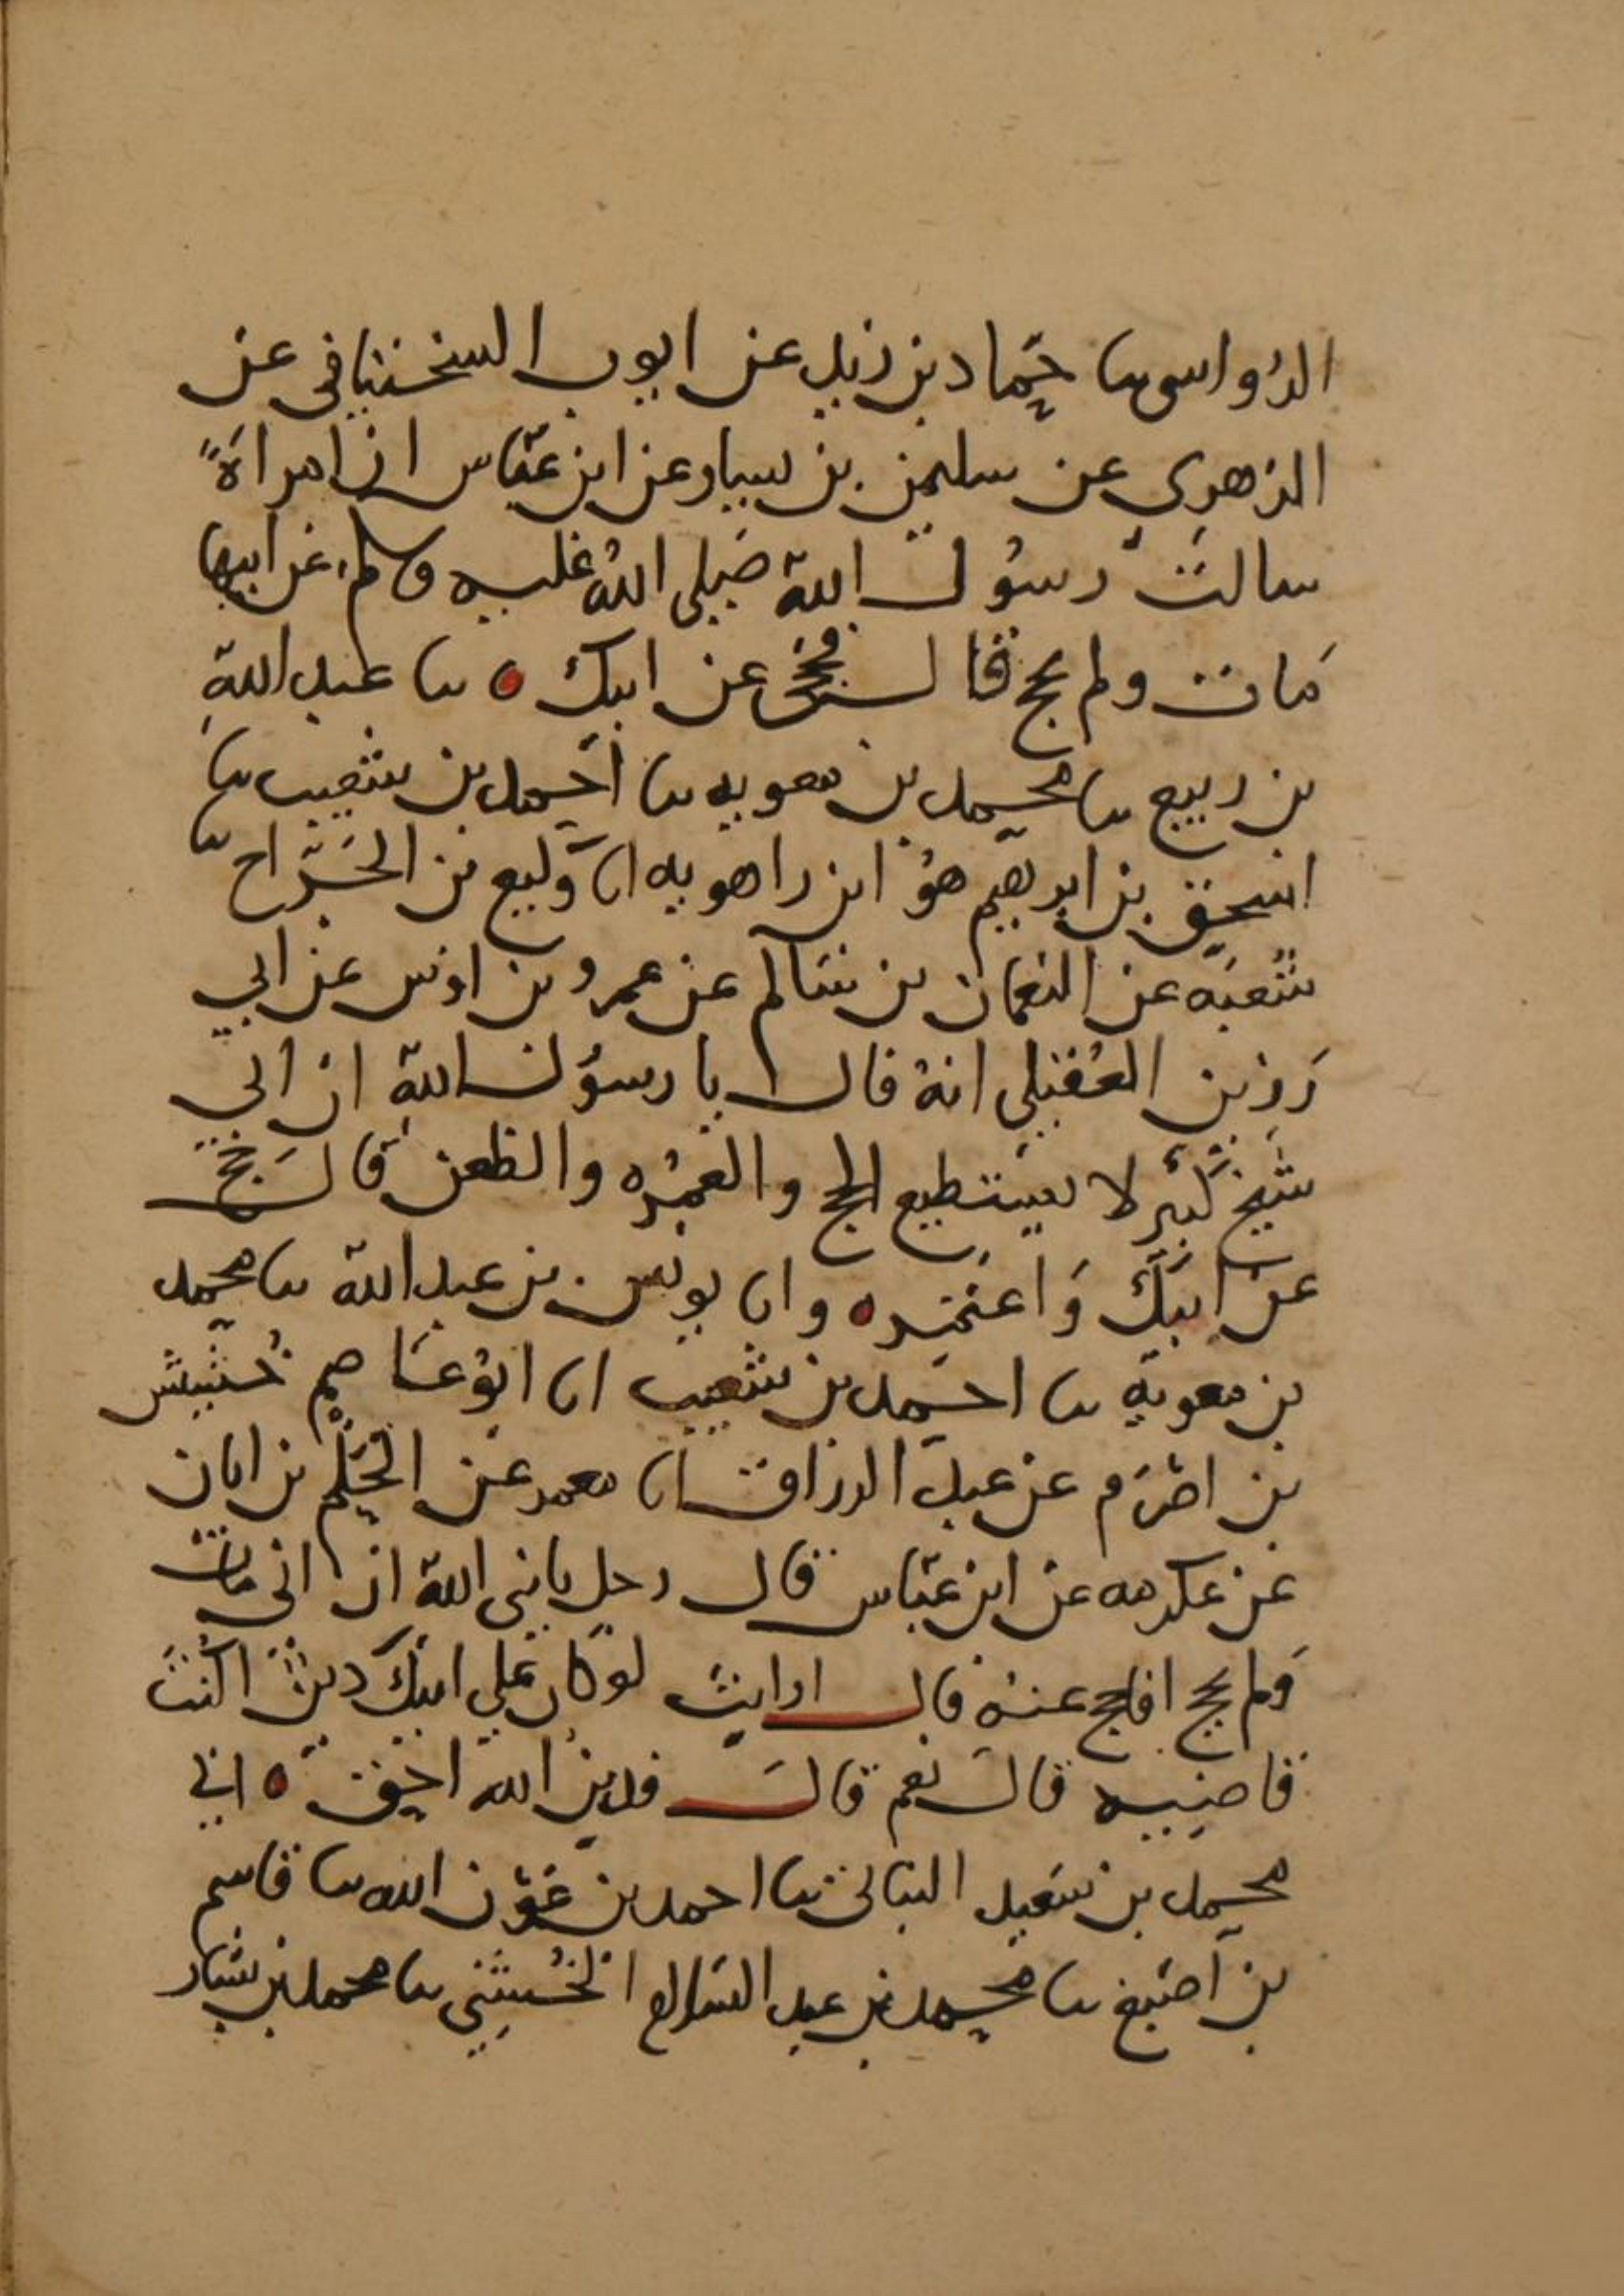 الرُواسى نا حمّاد بن زيد عن ايوب السختيانى عن
الزهري عن سليمن بن يسار عن ابن عبّاس ان امراةً
سالت رسُول الله صَلى اللهُ عليه وسلم عن ابيها
مَات ولم يحج قال حُجّى عن ابيك ٥ نا عبد الله
بن ربيع نا محمد بن معويه نا احمد بن شعيب نا
اسحق بن ابرهيم هوُ ابن راهويه انا وَكيع بن الجَرّاح نا
شُعبَه عن النعمان بن سَالم عن عمرو بن اوْس عن ابي
رَزين العُقيلى انهُ قال يا رسوُل الله ان ابي
شيخ كَبير لا يستطيع الحج والعُمرَه والظعن قال حُجّ
عن ابيكَ وَاعتَمِر ٥ وانا يونس بن عبد الله نا محمد
بن معويه نا احمد بن شعيب انا ابوُ عاصم خُشيش
بن اصْرَم عن عبد الرزاق انا معمر عن الحَكم بن ابان
عن عكرمه عن ابن عبّاس قال رجل يا نبى الله ان ابى مات
وَلم يحج افاحج عنهُ قال ارايتَ لوْ كان عَلي ابيكَ دينٌ اكُنتَ
قاضيه قال نعم قالَ فدين الله احق ٥ انا
محمد بن سَعيد النباتى نا احمد بن عَوْن الله نا قاسم
بن اصْبغ نا محمد بن عبد السّلام الخُشَنِي نا محمد بن بشار